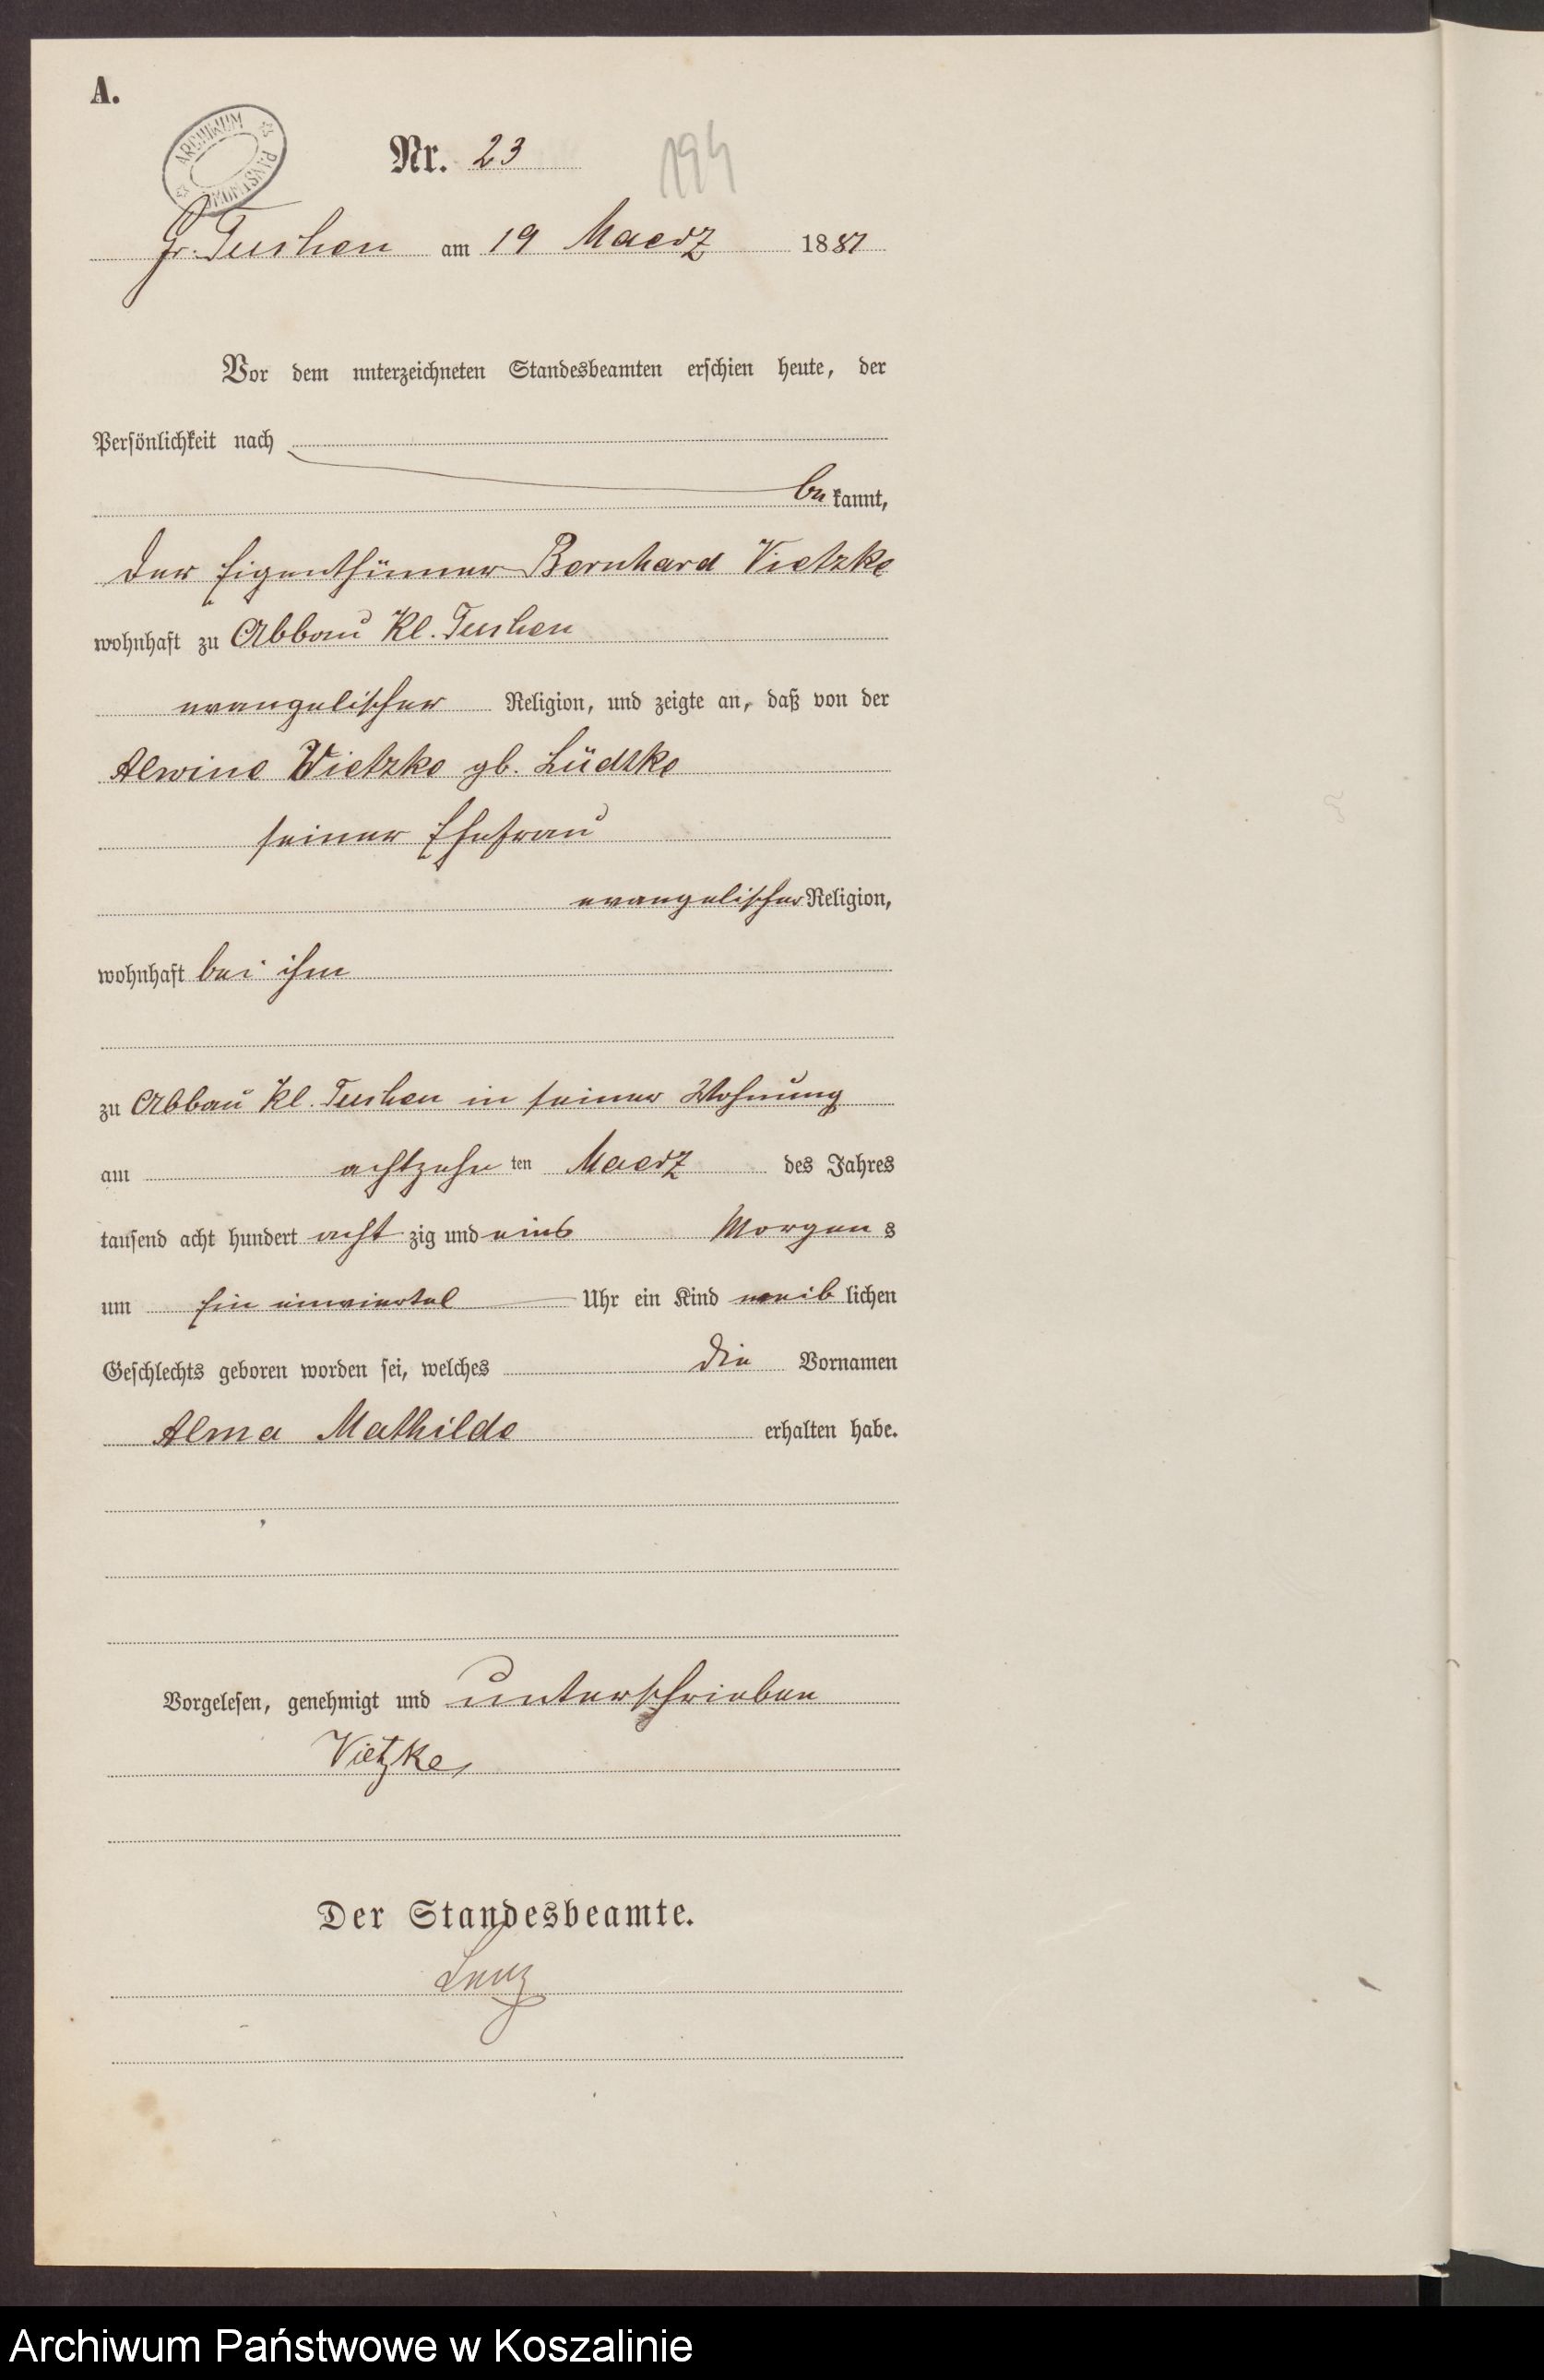 A.
ARCHIWUM PAŃSTWOWE
Nr. 23
194
Gr. Tuchen am 19 Maerz 1881
Vor dem unterzeichneten Standesbeamten erschien heute, der
Persönlichkeit nach
be kannt,
der Eigenthümer Bernhard Vietzke
wohnhaft zu Abbau Kl. Tuchen
evangelischer Religion, und zeigte an, daß von der
Alwine Vietzke gb. Lüdtke
seiner Ehefrau
evangelischer Religion,
wohnhaft bei ihm
zu Abbau Kl. Tuchen in seiner Wohnung
am achtzehn ten Maerz des Jahres
tausend acht hundert acht zig und eins Morgen s
um ein einviertel Uhr ein Kind weib lichen
Geschlechts geboren worden sei, welches die Vornamen
Alma Mathilde erhalten habe.
Vorgelesen, genehmigt und unterschrieben
Vietzke
Der Standesbeamte.
Lenz
Archiwum Państwowe w Koszalinie